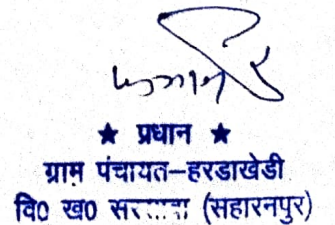 ★ प्रधान ★
ग्राम पंचायत–हरडाखेडी
वि0 ख0 (सहारनपुर)